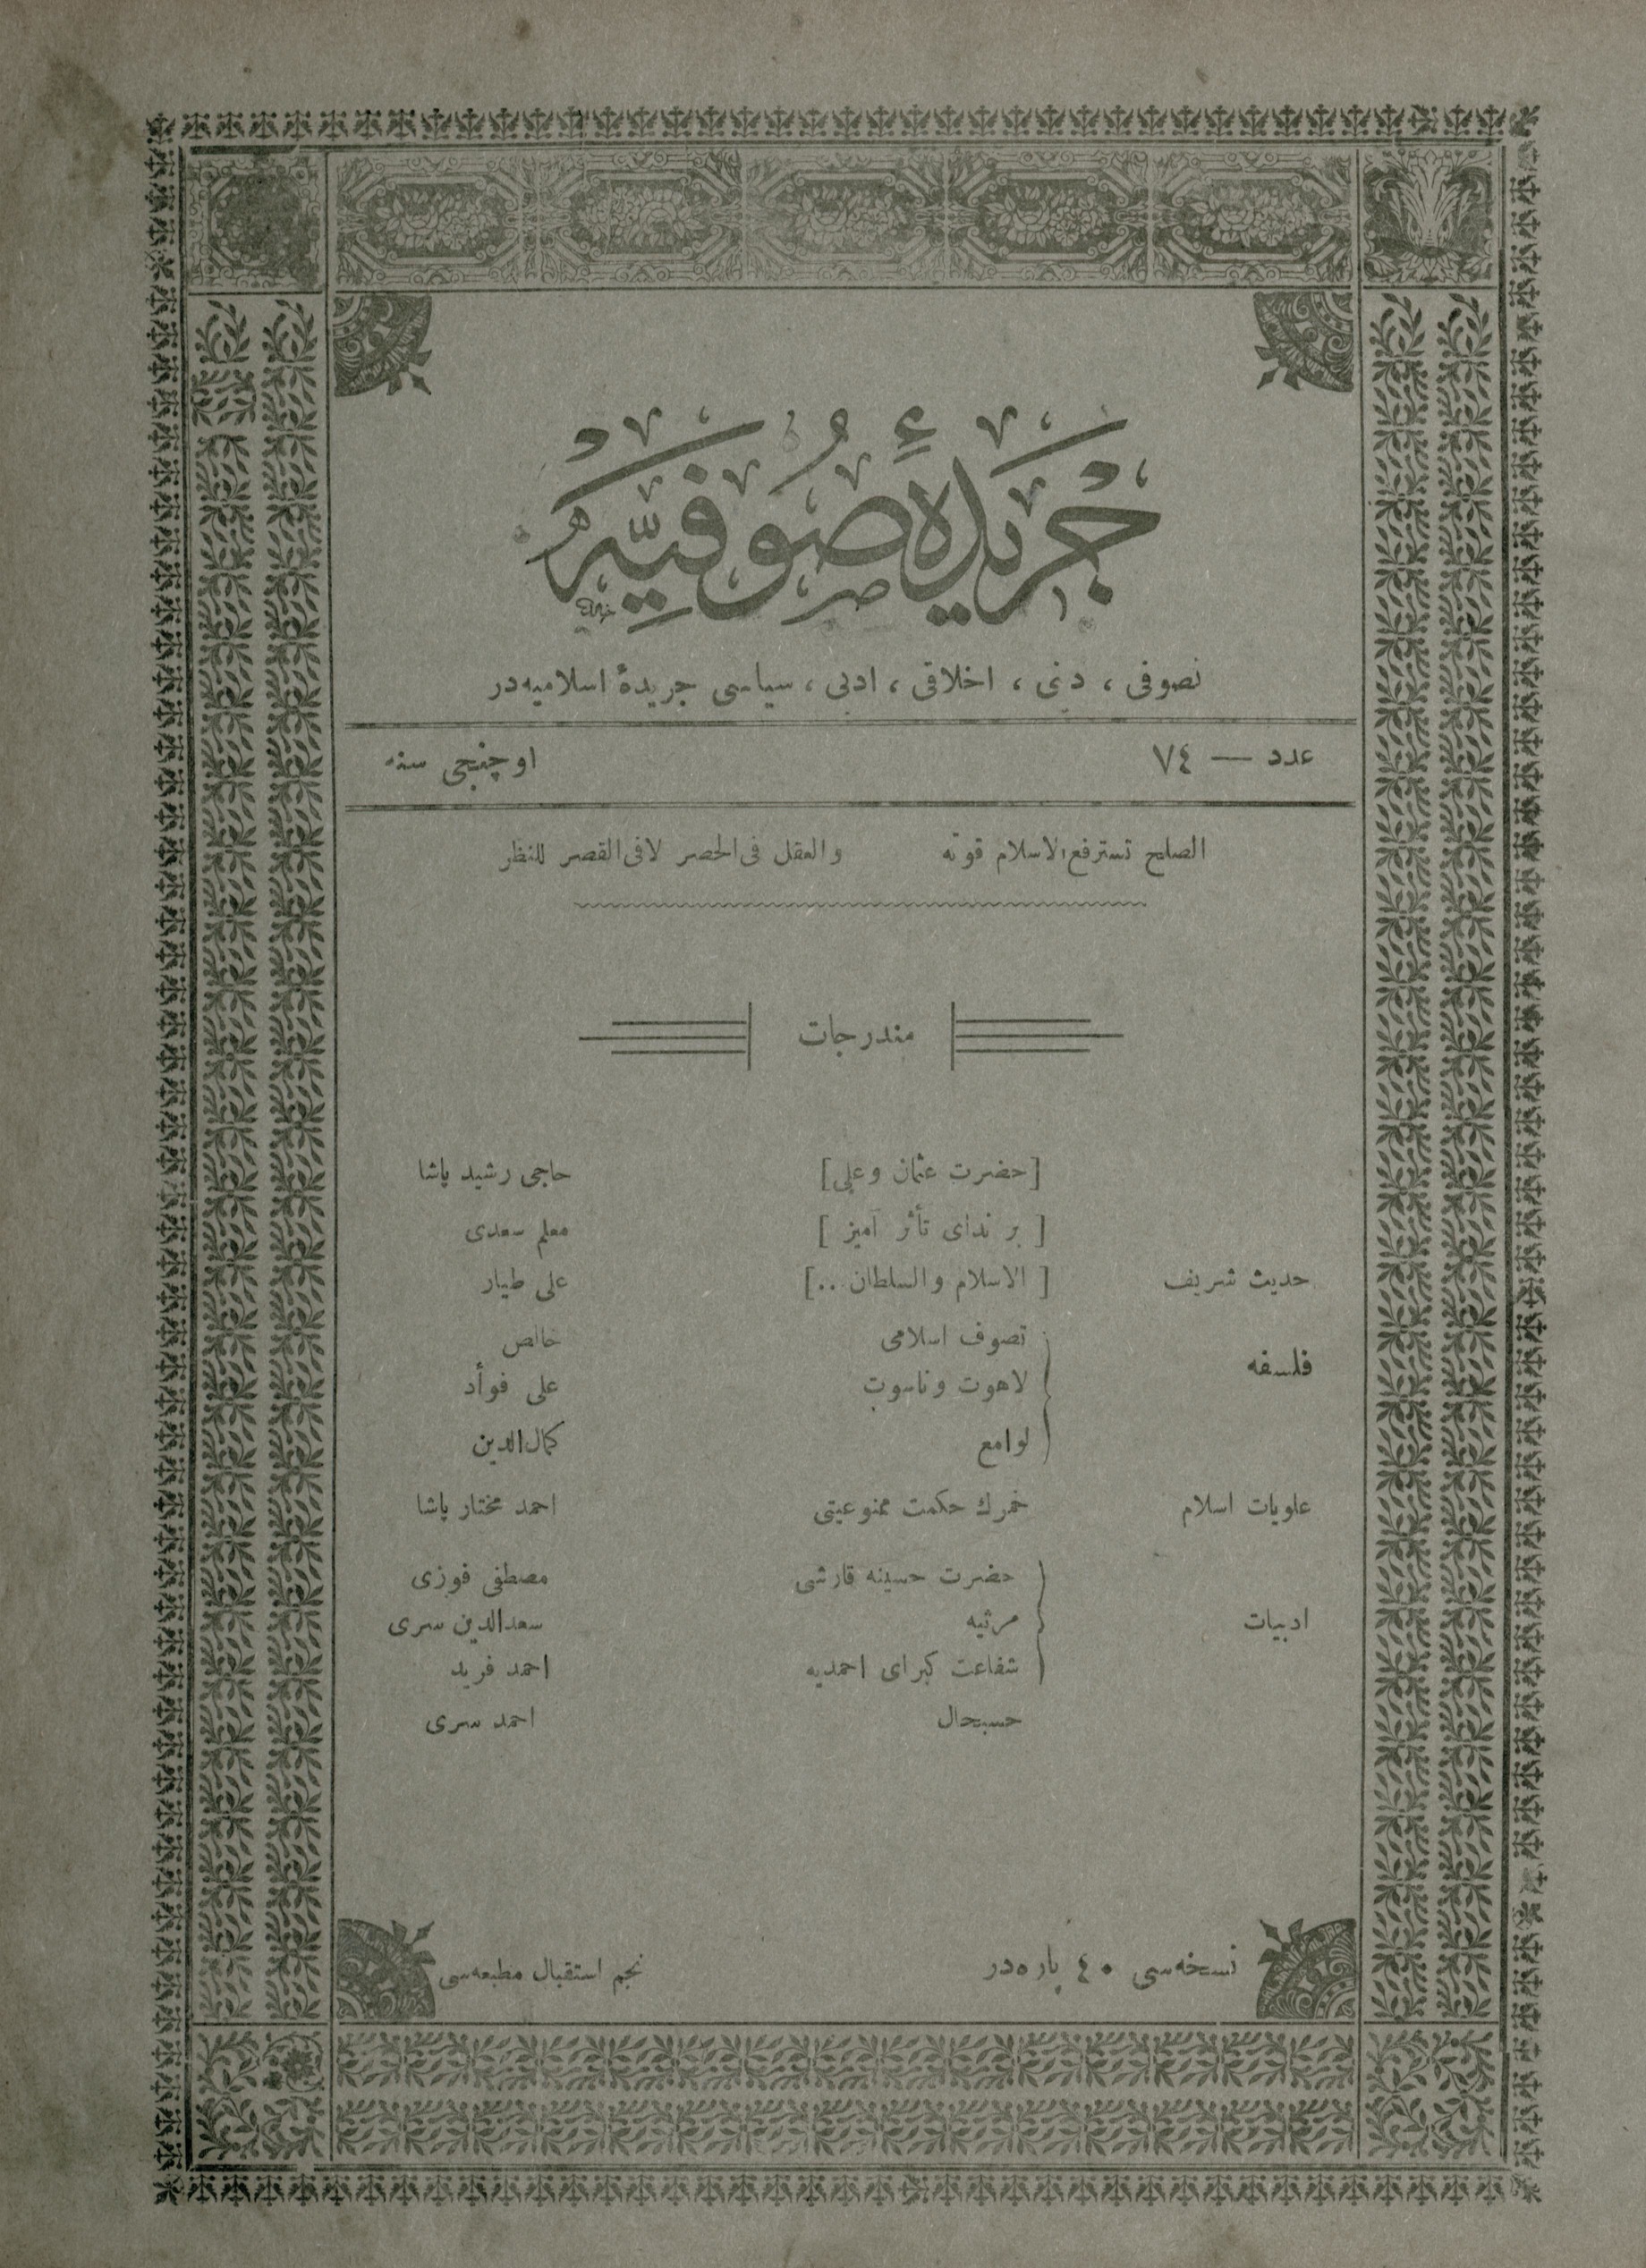 جريدهٔ صوفيه
تصوفى ، دينى ، اخلاقى ، ادبى ، سياسى جريدهٔ اسلاميه‌در
عدد — ٧٤ اوچنجى سنه
الصلح تسترفع الاسلام قوته والعقل فى الحصر لا فى القصر للنظر
مندرجات
[حضرت عثمان وعلى] حاجى رشيد پاشا
[ بر نداى تأثر آميز ] معلم سعدى
حديث شريف [ الاسلام والسلطان ..] على طيار
تصوف اسلامى خالص
فلسفه لاهوت وناسوت على فوأد
لوامع كمال‌الدين
علويات اسلام خمرك حكمت ممنوعيتى احمد مختار پاشا
حضرت حسينه قارشى مصطفى فوزى
ادبيات مرثيه سعدالدين سرى
شفاعت كبراى احمديه احمد فريد
حسبحال احمد سرى
نسخه‌سى ٤٠ پاره‌در نجم استقبال مطبعه‌سى